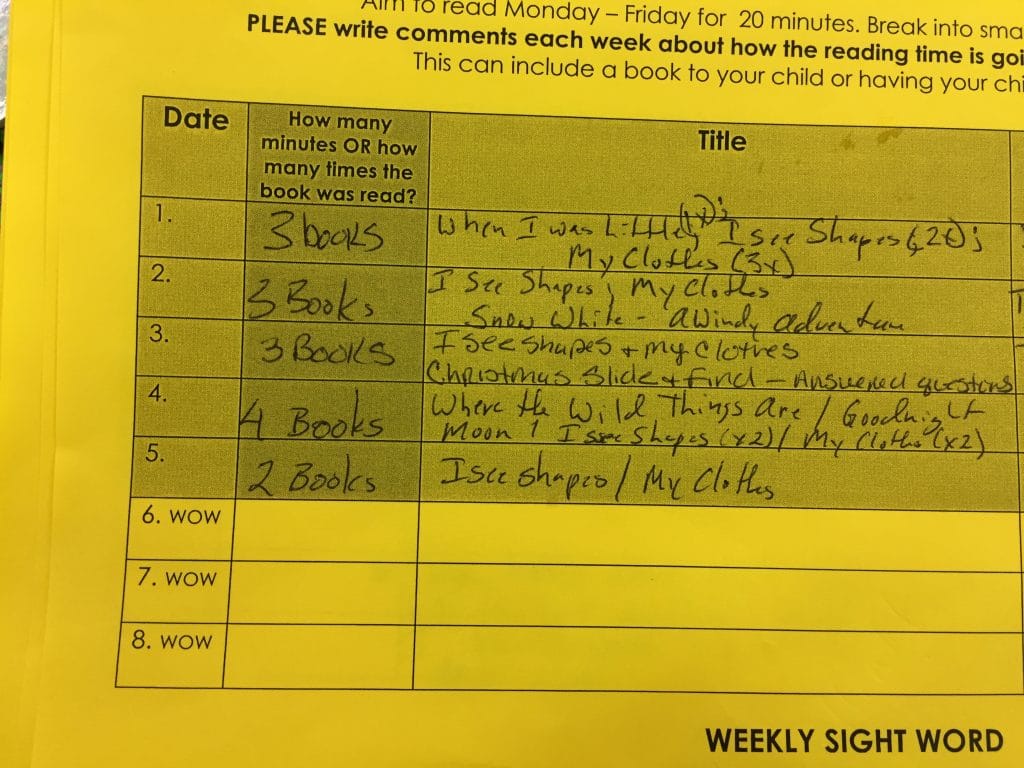 Aim to read Monday – Friday for 20 minutes. Break into sma
PLEASE write comments each week about how the reading time is goi
This can include a book to your child or having your chi
Date
How many
minutes OR how
many times the
book was read?
Title
1.
3 books
When I was Little (1x); I see Shapes (2x);
My Clothes (3x)
2.
3 Books
I See Shapes; My Clothes
Snow White - a Windy adventure
3.
3 Books
I see shapes + my clothes
Christmas Slide + Find - Answered questions
4.
4 Books
Where the Wild Things are / Goodnight
Moon / I see Shapes (x2) / My Clothes (x2)
5.
2 Books
I see shapes / My Clothes
6. WOW
7. WOW
8. WOW
WEEKLY SIGHT WORD